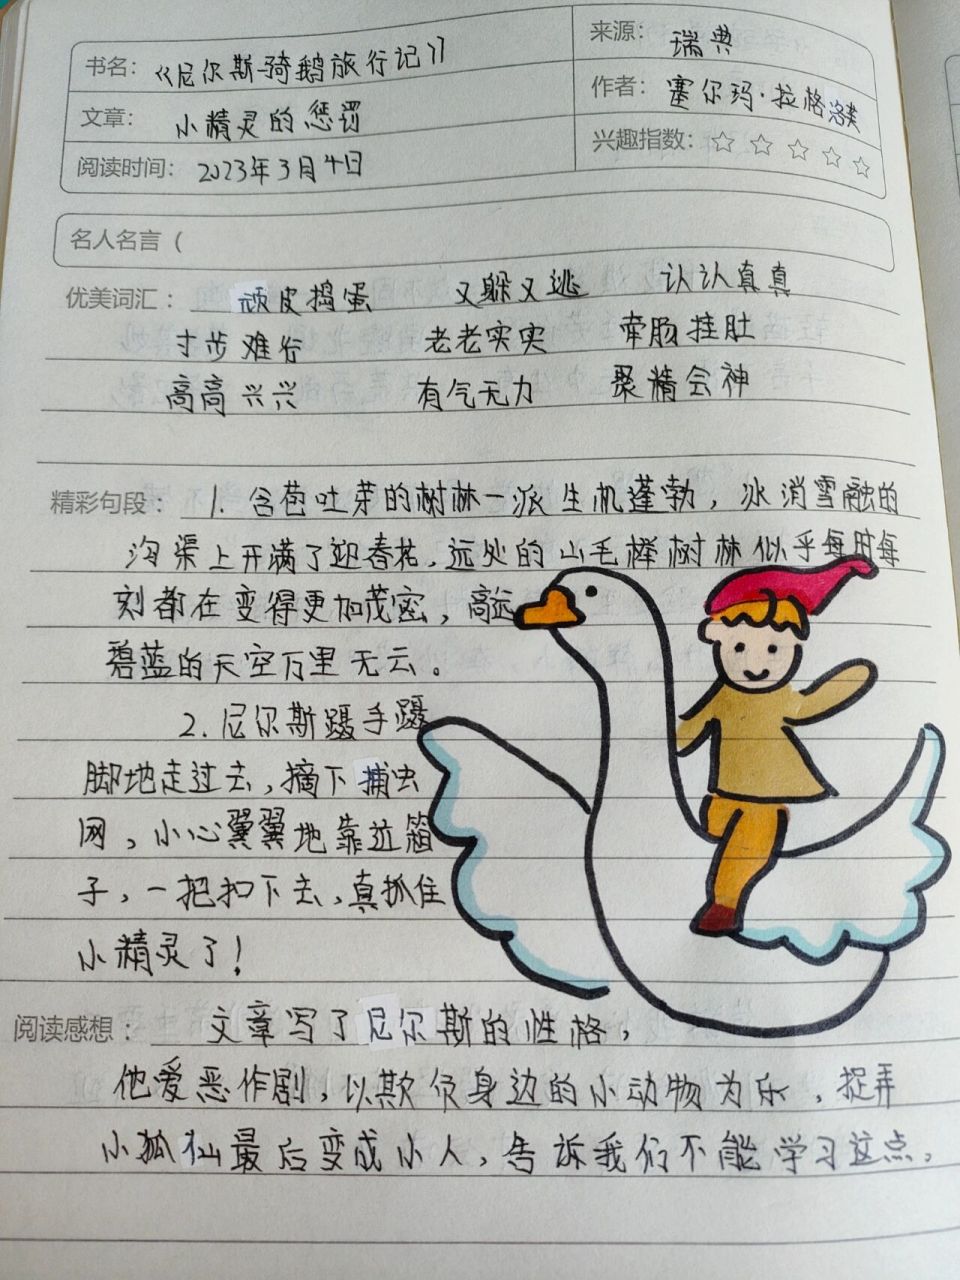 书名：《尼尔斯骑鹅旅行记》
来源：瑞典
文章：小精灵的惩罚
作者：塞尔玛·拉格洛芙
阅读时间：2023年3月4日
兴趣指数：☆ ☆ ☆ ☆ ☆
名人名言（
优美词汇：顽皮捣蛋 又躲又逃 认认真真
寸步难行 老老实实 牵肠挂肚
高高兴兴 有气无力 聚精会神
精彩句段：1. 含苞吐芽的树林一派生机蓬勃，冰消雪融的
沟渠上开满了迎春花，远处的山毛榉树林似乎每时每
刻都在变得更加茂密，高远
碧蓝的天空万里无云。
2. 尼尔斯蹑手蹑
脚地走过去，摘下捕虫
网，小心翼翼地靠近箱
子，一把扣下去，真抓住
小精灵了！
阅读感想：文章写了尼尔斯的性格，
他爱恶作剧，以欺负身边的小动物为乐，捉弄
小狐仙最后变成小人，告诉我们不能学习这点，